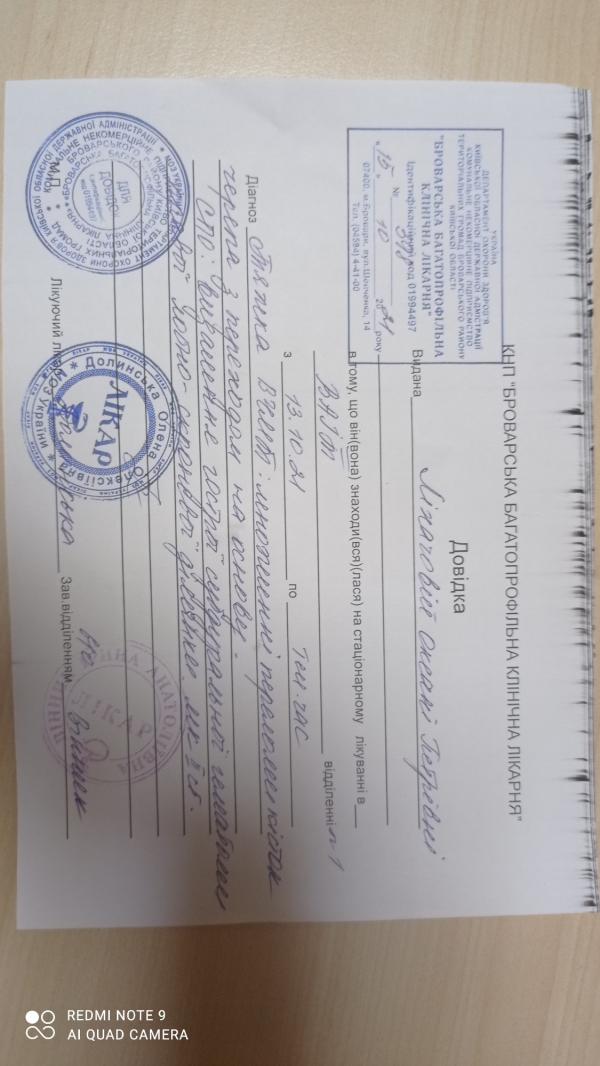 КНП "БРОВАРСЬКА БАГАТОПРОФІЛЬНА КЛІНІЧНА ЛІКАРНЯ"
УКРАЇНА
ДЕПАРТАМЕНТ ОХОРОНИ ЗДОРОВ'Я
КИЇВСЬКОЇ ОБЛАСНОЇ ДЕРЖАВНОЇ АДМІСТРАЦІЇ
КОМУНАЛЬНЕ НЕКОМЕРЦІЙНЕ ПІДПРИЄМСТВО
ТЕРИТОРІАЛЬНИХ ГРОМАД БРОВАРСЬКОГО РАЙОНУ
КИЇВСЬКОЇ ОБЛАСТІ
"БРОВАРСЬКА БАГАТОПРОФІЛЬНА
КЛІНІЧНА ЛІКАРНЯ"
Ідентифікаційний код 01994497
№ 398
"15" 10 2021 року
07400, м.Бровари, вул.Шевченка, 14
Тел. (04594) 4-41-00
Довідка
Видана Оксані Петрівні
в тому, що він(вона) знаходи(вся)(лася) на стаціонарному лікуванні в
ВАІТ відділенні n1
з 13.10.21 по теп.час
Діагноз Тяжка ВЧМТ: множинні переломи кісток
черепа з переходом на основу.
СТО: Видалення гострої субдуральної гематоми
лобно-скроневої ділянки.
М.П.
Лікуючий лікар Зав.відділенням
Долинська Олена Олексіївна
ЛІКАР
МОЗ України
ДЛЯ ДОВІДОК
ЛІКАР
АНАТОЛІЇВНА
REDMI NOTE 9
AI QUAD CAMERA